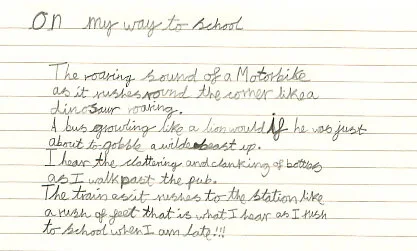 On my way to school
The roaring sound of a Motorbike
as it rushes round the corner like a
dinosaur roaring.
A bus growling like a lion would if he was just
about to gobble a wildebeast up.
I hear the clattering and clanking of bottles
as I walk past the pub.
The train as it rushes to the station like
a rush of feet that is what I hear as I rush
to school when I am late!!!